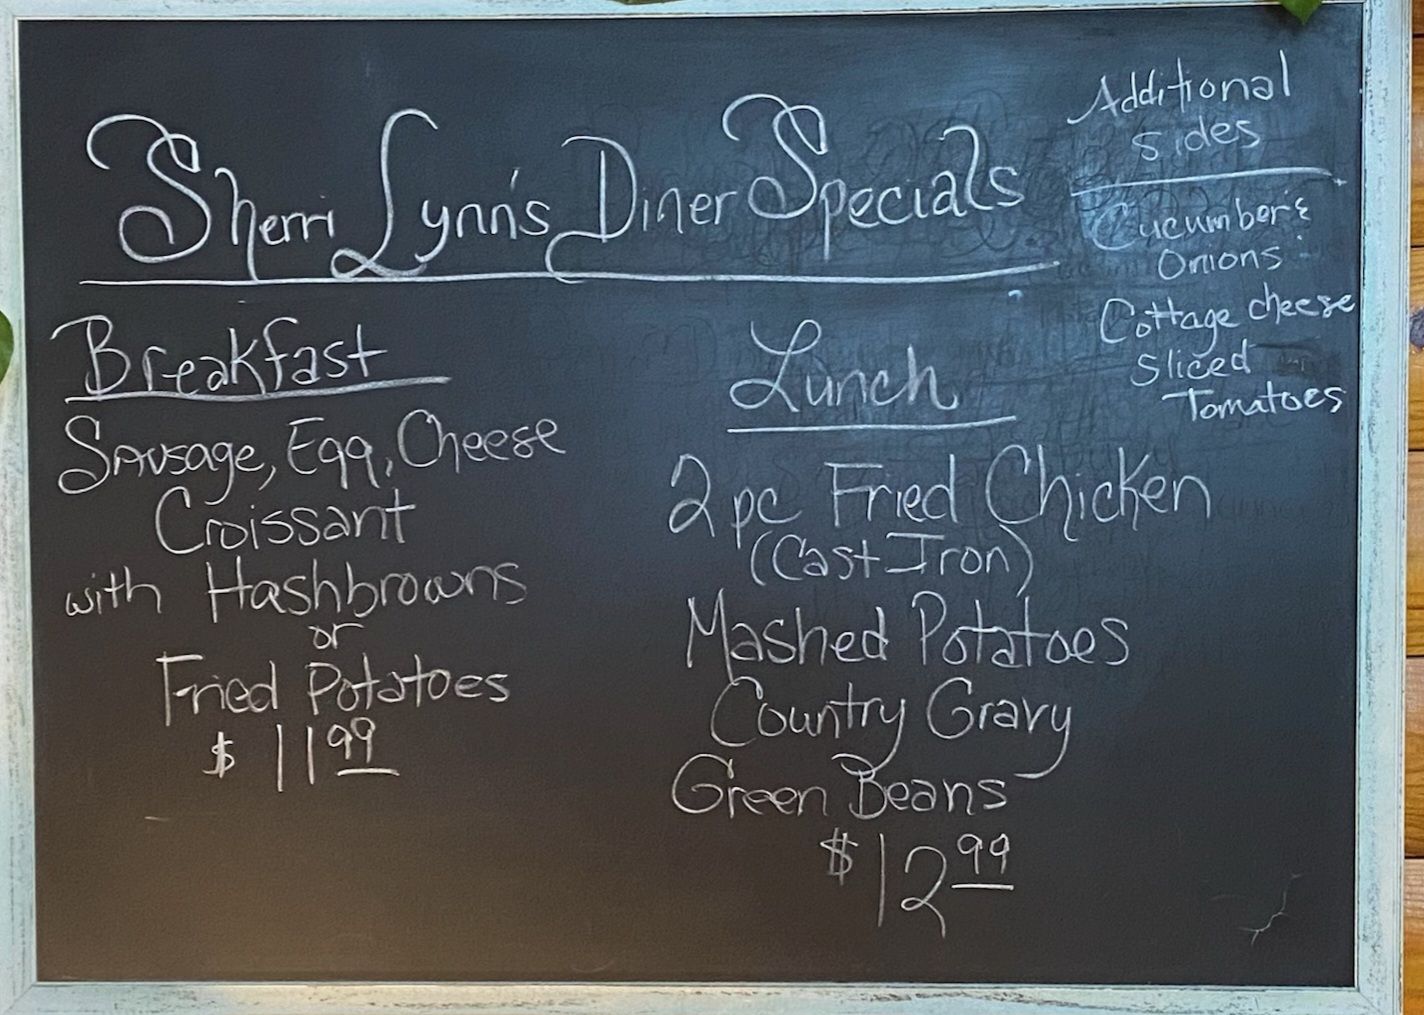 Sherri Lynn's Diner Specials
Breakfast
Sausage, Egg, Cheese
Croissant
with Hashbrowns
or
Fried Potatoes
$ 11 99
Lunch
2 pc Fried Chicken
(Cast Iron)
Mashed Potatoes
Country Gravy
Green Beans
$12 99
Additional
sides
Cucumber &
Onions
Cottage cheese
Sliced
Tomatoes